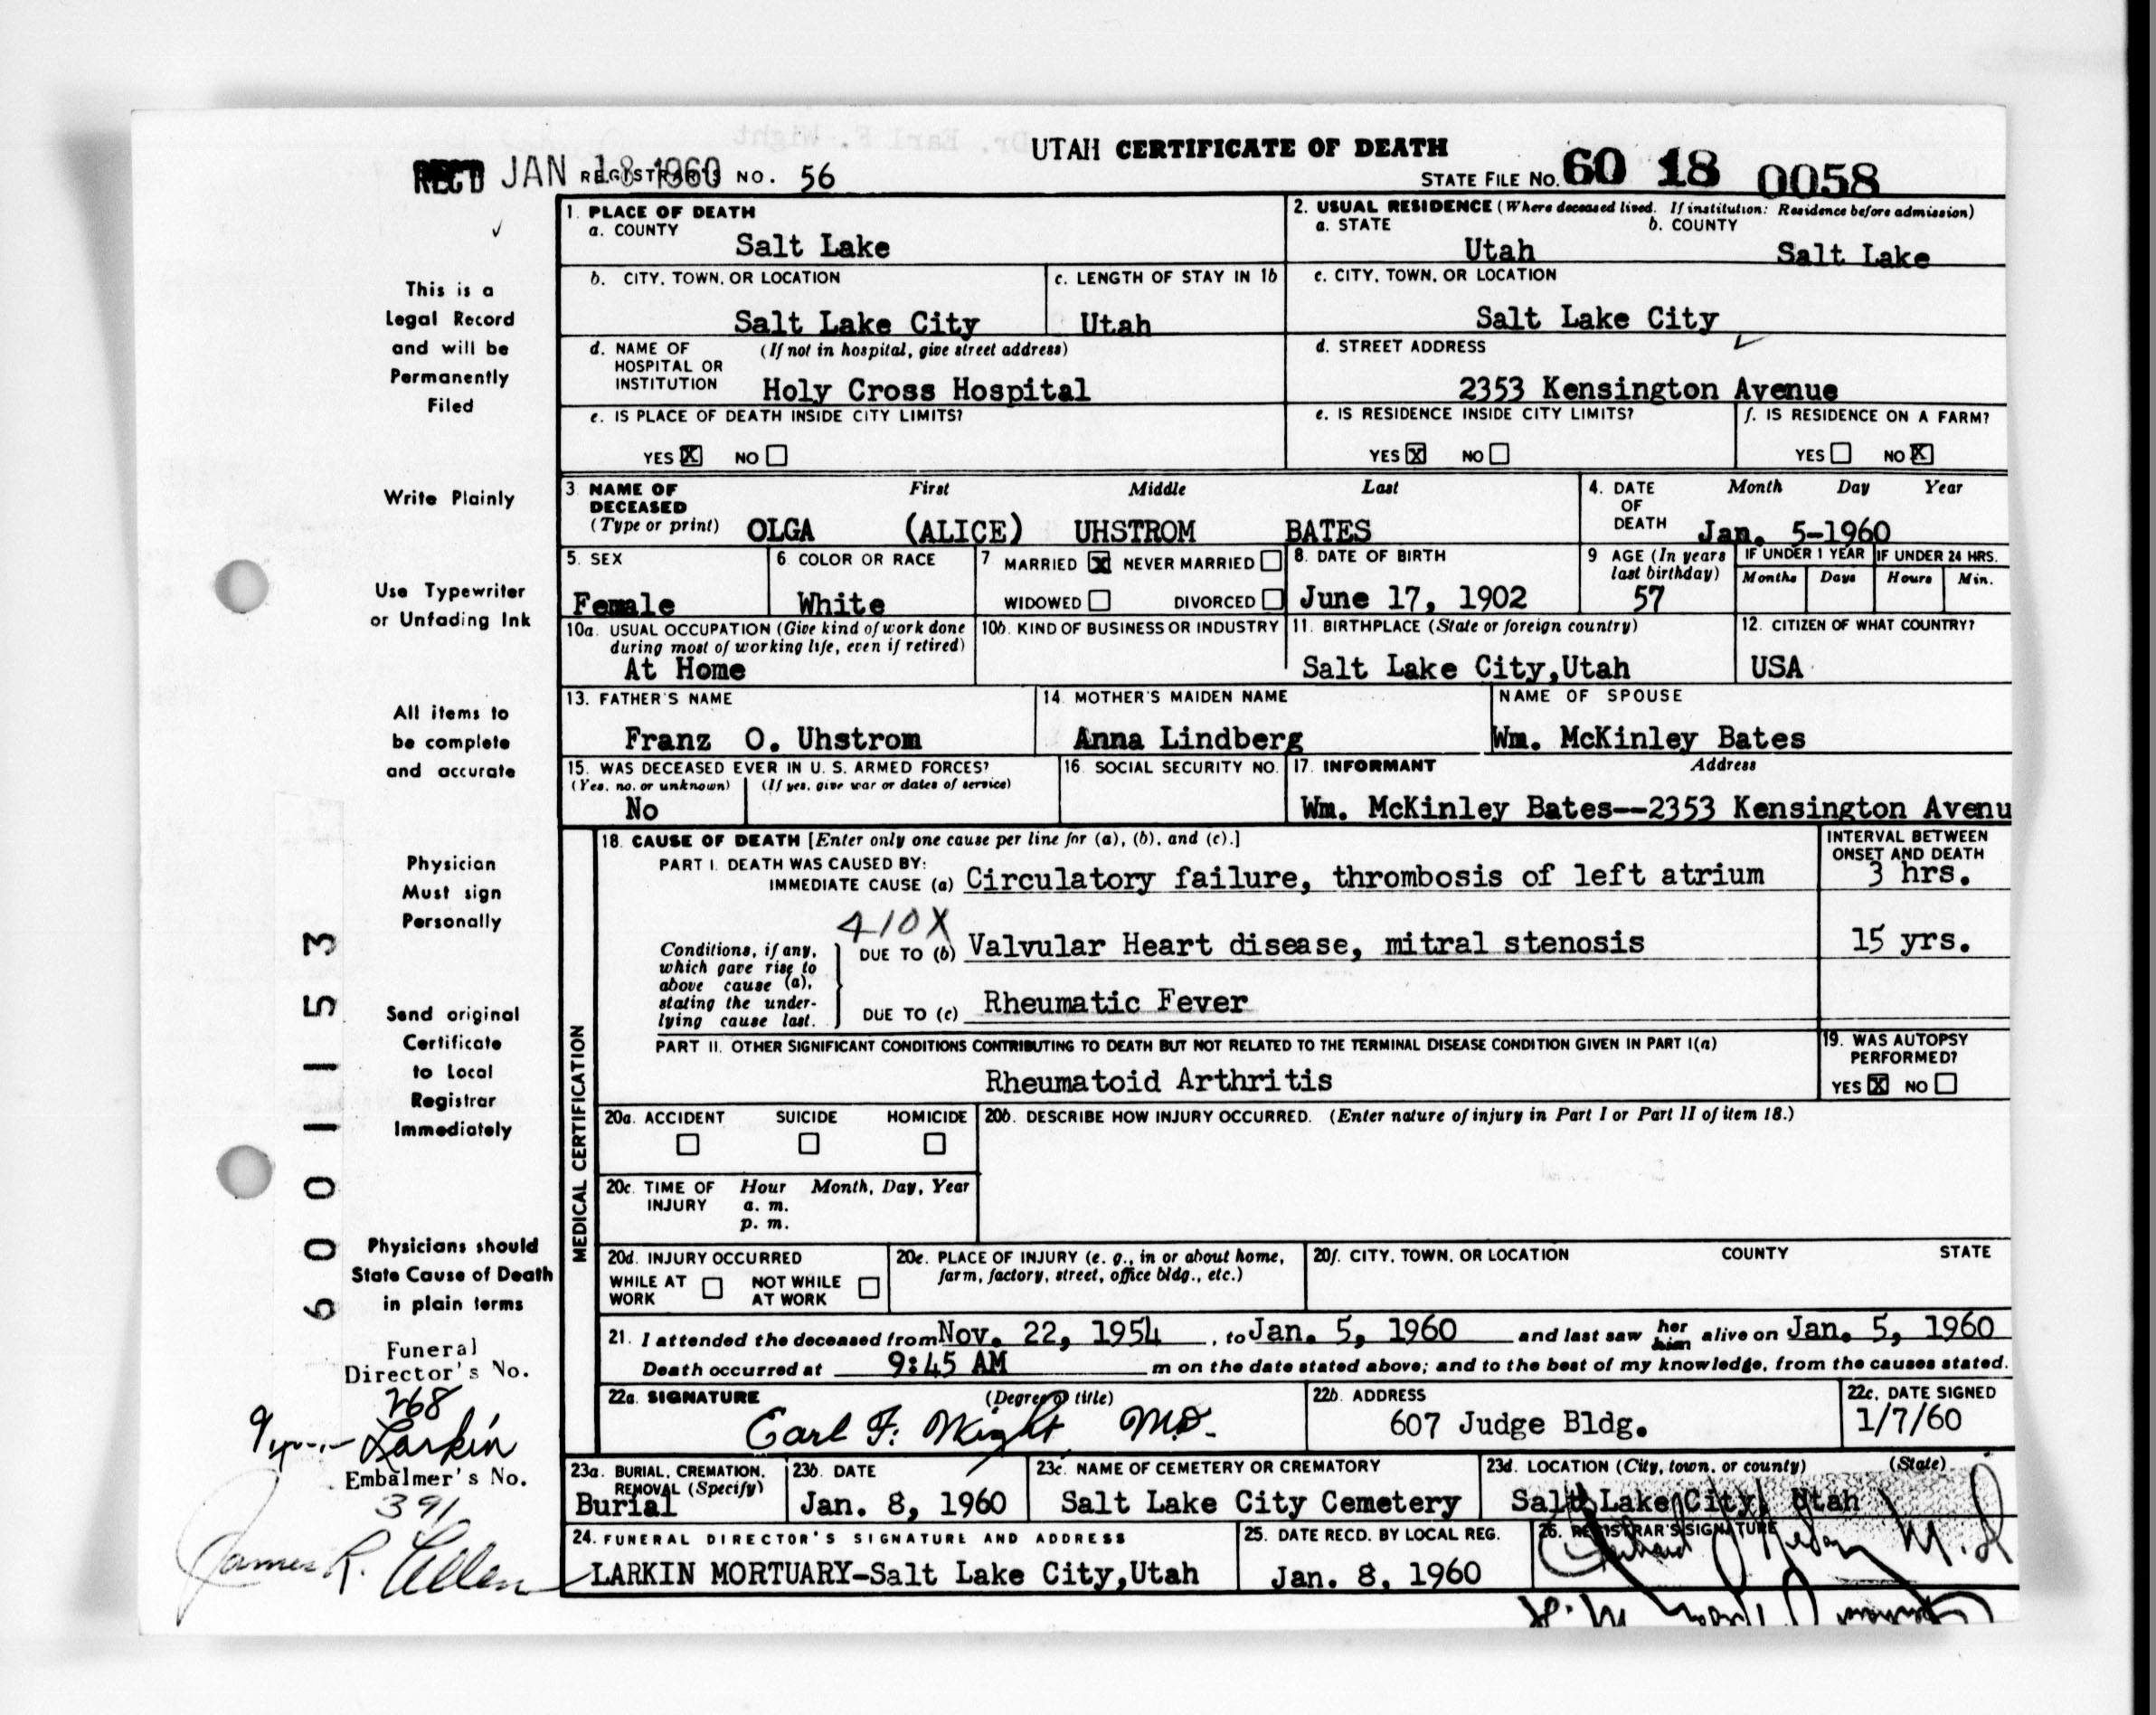 UTAH CERTIFICATE OF DEATH
REC'D JAN 18 1960 REGISTRAR'S NO. 56
STATE FILE NO. 60 18 0058
This is a
Legal Record
and will be
Permanently
Filed
Write Plainly
Use Typewriter
or Unfading Ink
All items to
be complete
and accurate
Physician
Must sign
Personally
Send original
Certificate
to Local
Registrar
Immediately
Physicians should
State Cause of Death
in plain terms
Funeral
Director's No.
268
Larkin
Embalmer's No.
391
James R. Allen
6001153
1. PLACE OF DEATH
a. COUNTY
Salt Lake
2. USUAL RESIDENCE (Where deceased lived. If institution: Residence before admission)
a. STATE b. COUNTY
Utah Salt Lake
b. CITY, TOWN, OR LOCATION
Salt Lake City
c. LENGTH OF STAY IN 1b
Utah
c. CITY, TOWN, OR LOCATION
Salt Lake City
d. NAME OF (If not in hospital, give street address)
HOSPITAL OR
INSTITUTION Holy Cross Hospital
d. STREET ADDRESS
2353 Kensington Avenue
e. IS PLACE OF DEATH INSIDE CITY LIMITS?
YES X NO
e. IS RESIDENCE INSIDE CITY LIMITS?
YES X NO
f. IS RESIDENCE ON A FARM?
YES NO X
3. NAME OF First Middle Last
DECEASED
(Type or print) OLGA (ALICE) UHSTROM BATES
4. DATE Month Day Year
OF
DEATH Jan. 5-1960
5. SEX
Female
6. COLOR OR RACE
White
7 MARRIED X NEVER MARRIED
WIDOWED DIVORCED
8. DATE OF BIRTH
June 17, 1902
9 AGE (In years
last birthday)
57
IF UNDER 1 YEAR IF UNDER 24 HRS.
Months Days Hours Min.
10a. USUAL OCCUPATION (Give kind of work done
during most of working life, even if retired)
At Home
10b. KIND OF BUSINESS OR INDUSTRY
11. BIRTHPLACE (State or foreign country)
Salt Lake City,Utah
12. CITIZEN OF WHAT COUNTRY?
USA
13. FATHER'S NAME
Franz O. Uhstrom
14 MOTHER'S MAIDEN NAME
Anna Lindberg
NAME OF SPOUSE
Wm. McKinley Bates
15. WAS DECEASED EVER IN U. S. ARMED FORCES?
(Yes, no, or unknown) (If yes, give war or dates of service)
No
16. SOCIAL SECURITY NO.
17. INFORMANT Address
Wm. McKinley Bates--2353 Kensington Avenu
MEDICAL CERTIFICATION
18. CAUSE OF DEATH [Enter only one cause per line for (a), (b), and (c).]
PART I. DEATH WAS CAUSED BY:
IMMEDIATE CAUSE (a) Circulatory failure, thrombosis of left atrium
INTERVAL BETWEEN
ONSET AND DEATH
3 hrs.
410X
Conditions, if any,
which gave rise to
above cause (a),
stating the under-
lying cause last.
DUE TO (b) Valvular Heart disease, mitral stenosis
15 yrs.
DUE TO (c) Rheumatic Fever
PART II. OTHER SIGNIFICANT CONDITIONS CONTRIBUTING TO DEATH BUT NOT RELATED TO THE TERMINAL DISEASE CONDITION GIVEN IN PART I(a)
Rheumatoid Arthritis
19. WAS AUTOPSY
PERFORMED?
YES X NO
20a. ACCIDENT SUICIDE HOMICIDE
20b. DESCRIBE HOW INJURY OCCURRED. (Enter nature of injury in Part I or Part II of item 18.)
20c. TIME OF Hour Month, Day, Year
INJURY a. m.
p. m.
20d. INJURY OCCURRED
WHILE AT NOT WHILE
WORK AT WORK
20e. PLACE OF INJURY (e. g., in or about home,
farm, factory, street, office bldg., etc.)
20f. CITY, TOWN, OR LOCATION COUNTY STATE
21. I attended the deceased from Nov. 22, 1954, to Jan. 5, 1960 and last saw her him alive on Jan. 5, 1960
Death occurred at 9:45 AM m on the date stated above; and to the best of my knowledge, from the causes stated.
22a. SIGNATURE (Degree or title)
Earl F. Wight MD.
22b. ADDRESS
607 Judge Bldg.
22c. DATE SIGNED
1/7/60
23a. BURIAL, CREMATION,
REMOVAL (Specify)
Burial
23b. DATE
Jan. 8, 1960
23c. NAME OF CEMETERY OR CREMATORY
Salt Lake City Cemetery
23d. LOCATION (City, town, or county) (State)
Salt Lake City, Utah
24. FUNERAL DIRECTOR'S SIGNATURE AND ADDRESS
LARKIN MORTUARY-Salt Lake City,Utah
25. DATE RECD. BY LOCAL REG.
Jan. 8, 1960
26. REGISTRAR'S SIGNATURE